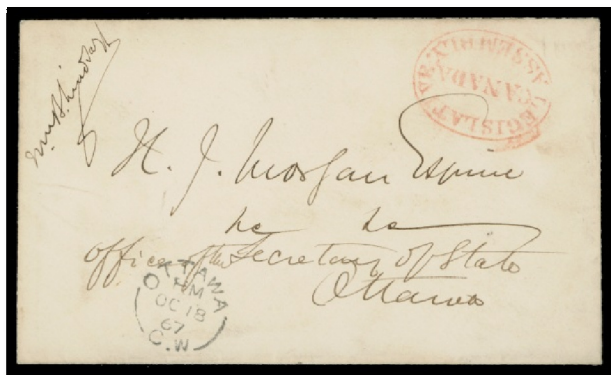 Wm B. Lindsay
LEGISLATIVE ASSEMBLY
CANADA
H. J. Morgan Esquire
&c &c
Office of the Secretary of State
Ottawa
OTTAWA
PM
OC 18
67
C.W